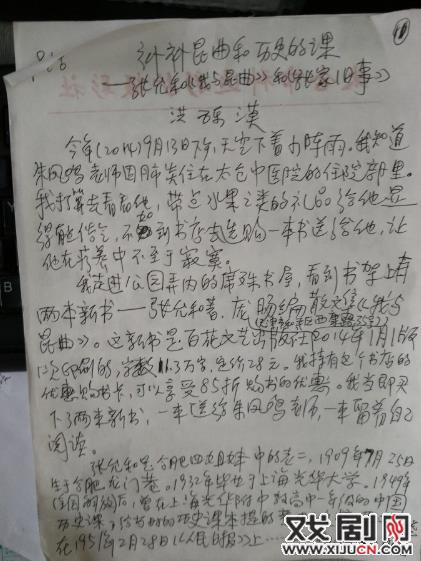 补补昆曲和历史的课
——张允和《我与昆曲》和《张家旧事》
洪
汉
今年(2014)9月13日下午,天空下着小阵雨,我知道
朱凤鸣老师因肺炎住在太仓中医院的住院部里。
我打算去看看他,带点水果之类的礼品给他显
得俗气,不如到书店去选购一本书送给他,让
他在疗养中不至于寂寞。
我走进公园弄内的席殊书屋,看到书架上有
两本新书——张允和著、龙
编
《我与
昆曲》。这新书是百花文艺出版社2014年1月1版
1次印刷的,字数11.3万字,定价28元。我持有这个书店的
优惠购书卡,可以享受85折购书的优惠。我当即买
下了两本新书,一本送给朱凤鸣老师,一本留着自己
阅读。
张允和是合肥四姐妹中的老二,1909年7月25日
生于合肥龙门巷。1932年毕业于上海光华大学。1949年
全国解放后,曾在上海光华附中教高中一年级的中国
历史课,
的历史课本提的
在1951年2月28日《人民日报》上……
戏剧网
www.XIJUCN.com